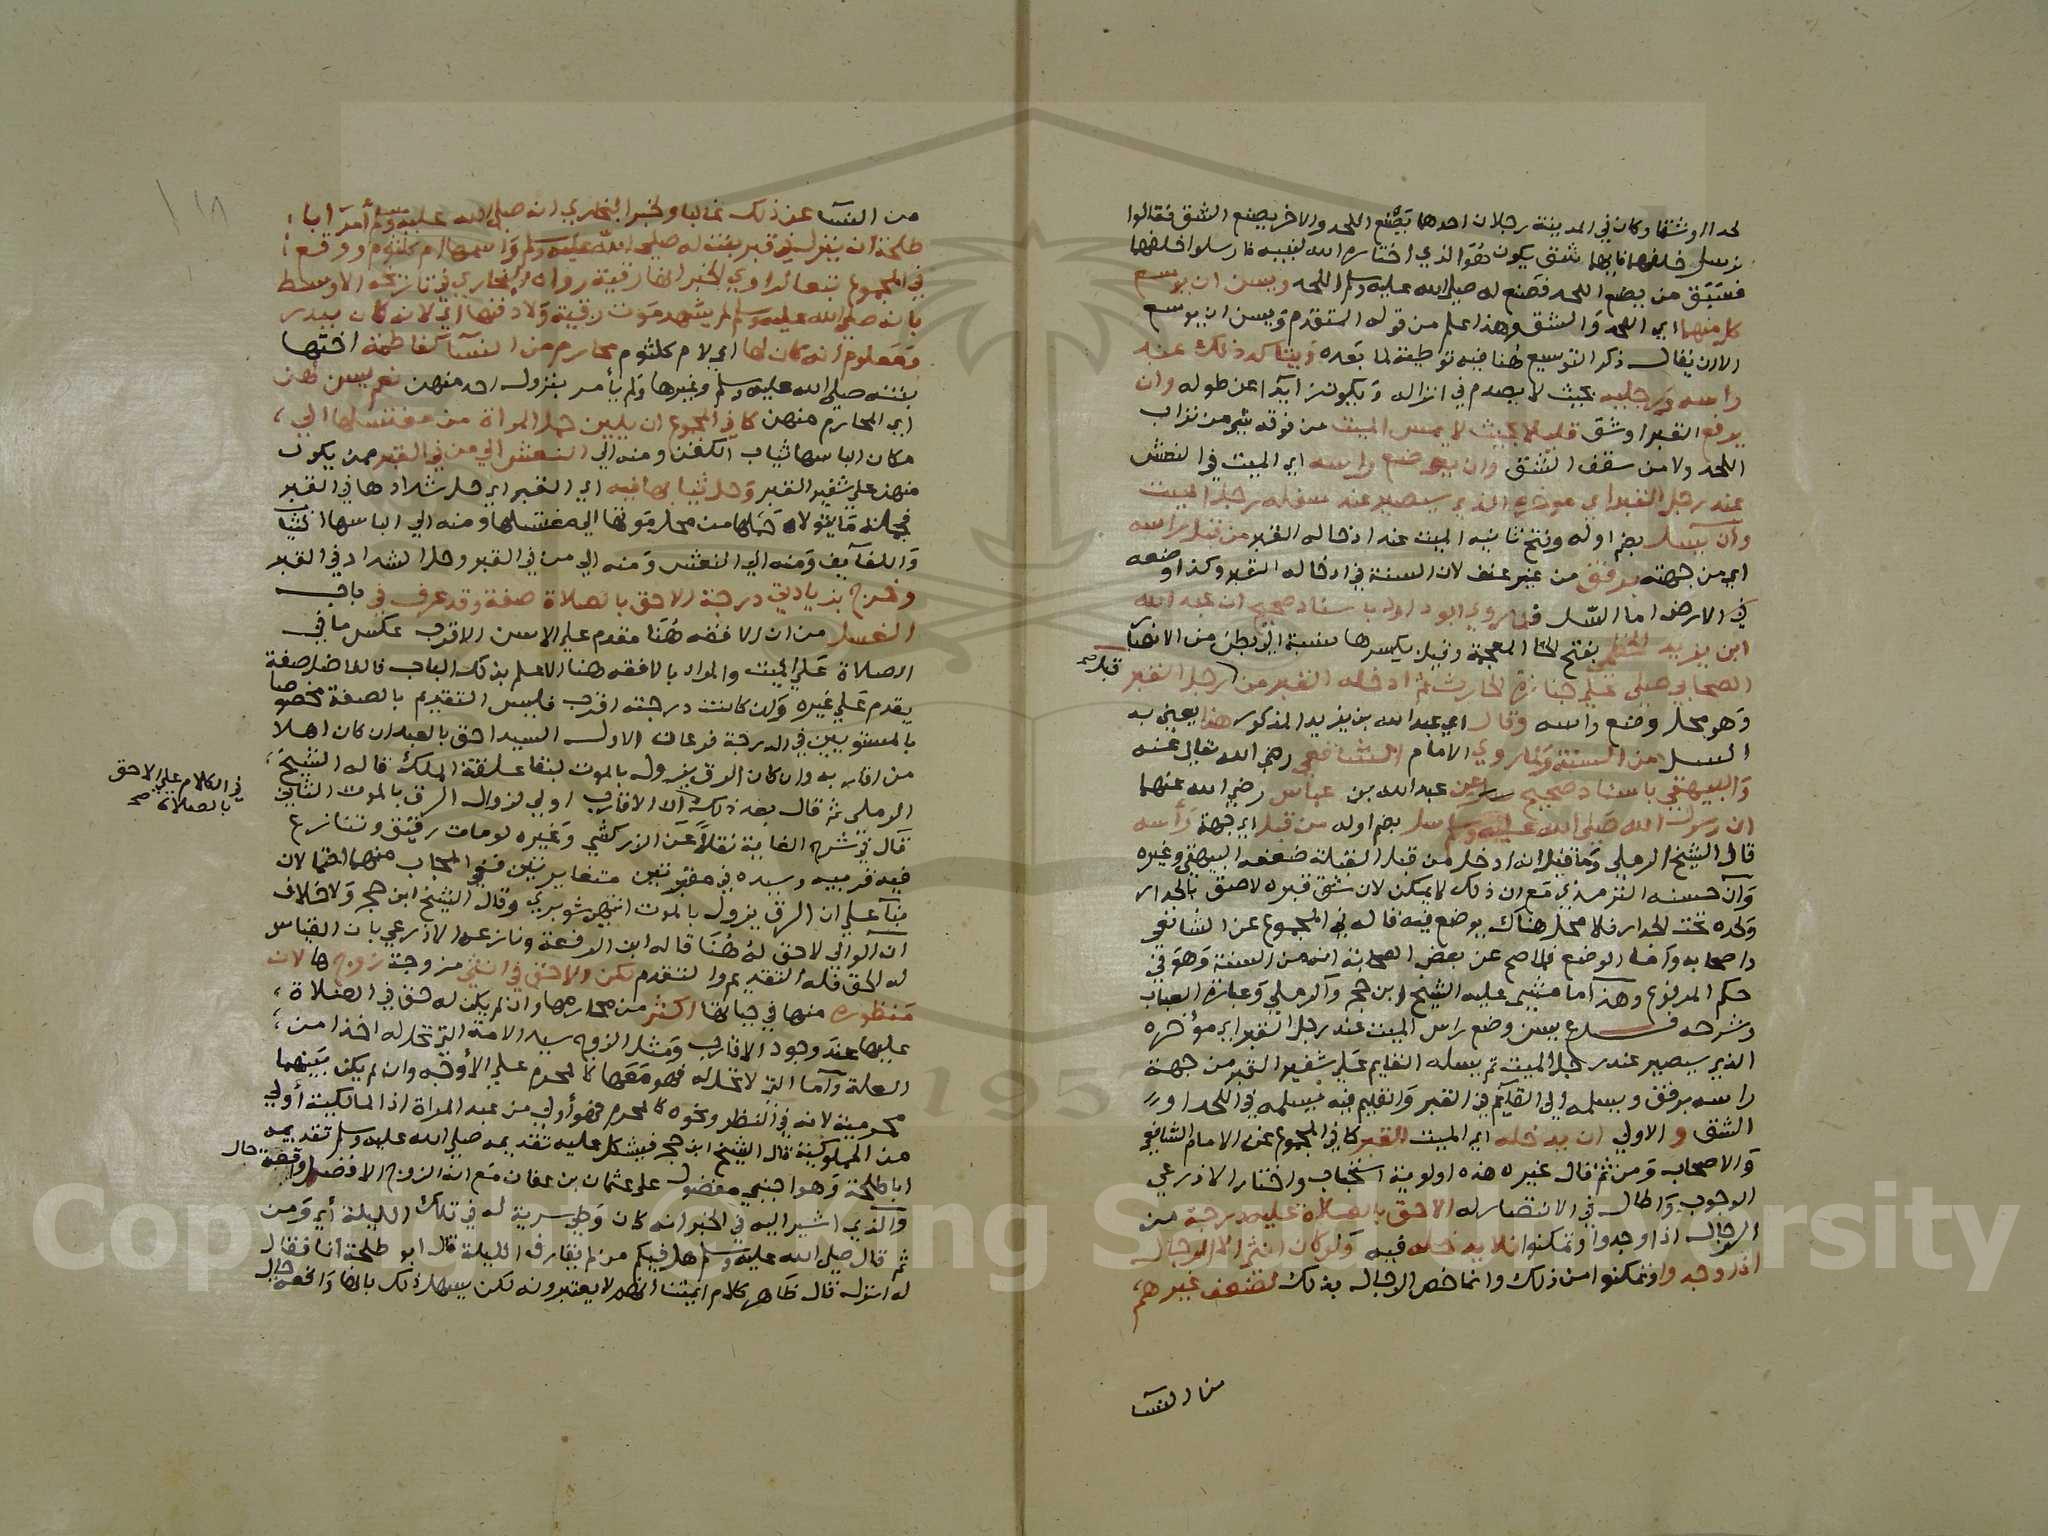 لحدا او شقا وكان في المدينة رجلان احدهما يصنع اللحد والاخر يصنع الشق فقالوا
نرسل خلفهما فايهما سبق يكون هو الذي اختاره الله لنبيه فارسلوا خلفهما
فسبق من يصنع اللحد فصنع له صلى الله عليه وسلم اللحد ويسن ان يوسع
كل منهما اي اللحد والشق وهذا علم من قوله المتقدم ويسن ان يوسع
الا ان يقال ذكر التوسيع هنا فيه توطئة لما بعده ويتاكد ذلك عند
راسه ورجليه بحيث لا يصدم في انزاله وان
يرفع القبر او شق قليلا بحيث لا يمس الميت من فوقه شي من تراب
اللحد ولا من سقف الشق وان يوضع راسه اي الميت في النعش
عند رجل القبر اي موضع الذي سيصير عند سفله رجل الميت
وان يسل بضم اوله وفتح ثانيه الميت عند ادخاله القبر من قبل راسه
اي من جهته برفق من غير عنف لان السنة في ادخاله القبر وكذا وضعه
في الارض اما السل فلما روي ابو داود باسناد صحيح ان عبد الله
ابن يزيد الخطمي بفتح الخا المعجمة وقيل بكسرها نسبة الي بطن من الانصار
الصحابي صلى على جنازة الحارث ثم ادخله القبر من رجل القبر
قبل صح
وهو محل وضع راسه وقال اي عبد الله بن يزيد المذكور هذا يعني به
السل من السنة ولما روي الامام الشافعي رضي الله تعالى عنه
والبيهقي باسناد صحيح عن عبد الله بن عباس رضي الله عنهما
ان رسول الله صلى الله عليه وسلم سل بضم اوله من قبل اي جهة راسه
قال الشيخ الرملي وما قيل انه ادخل من قبل القبلة ضعفه البيهقي وغيره
وان حسنه الترمذي مع ان ذلك لا يمكن لان شق قبره لاصق بالجدار
ولحده تحت الجدار فلا محل هناك يوضع فيه قاله في المجموع عن الشافعي
واصحابه واما الوضع فلما صح عن بعض الصحابة انه من السنة وهو في
حكم المرفوع وهذا ما مشى عليه الشيخ ابن حجر والرملي وعبارة العباب
وشرحه فرع يسن وضع راس الميت عند رجل القبر اي مؤخره
الذي سيصير عند رجل الميت ثم يسله القايم على شفير القبر من جهة
راسه برفق ويسلمه الى القايم في القبر والقايم فيه يسلمه في اللحد او
الشق و الاولي ان يدخله اي الميت القبر كما في المجموع عن الامام الشافعي
والاصحاب ومن ثم قال غيره هذه اولوية استحباب واختار الاذرعي
الوجوب واطال في الانتصار له الاحق بالصلاة عليه درجة من
الرجال اذا وجدوا وتمكنوا فلا يدخله فيه ولو كان انثى الا الرجال
اذا وجدوا وتمكنوا من ذلك وانما خص الرجال بذلك لضعف غيرهم
من النسا
١١٨
من النسا عن ذلك غالبا ولخبر البخاري انه صلى الله عليه وسلم أمر ابا
طلحة ان ينزل في قبر بنت له صلى الله عليه وسلم واسمها ام كلثوم ووقع
في المجموع تبعا لراوي الخبر انها رقية رواه البخاري في تاريخه الاوسط
بانه صلى الله عليه وسلم لم يشهد موت رقية ولا دفنها اي لانه كان ببدر
ومعلوم انه كان لها اي لام كلثوم محارم من النسا كفاطمة اختها
بنته صلى الله عليه وسلم وغيرها ولم يأمر بنزول احد منهن نعم يسن لهن
اي المحارم منهن كما في المجموع ان يلين حمل المراة من مغتسلها الي
مكان الباسها ثياب الكفن ومنه الي النعش الي من في القبر ممن يكون
منهن علي شفير القبر وحل ثيابها فيه اي القبر اي حل شدادها في القبر
فجملة ما يتولاه حملها من محل موتها الي مغتسلها ومنه الي الباسها الثياب
واللفايف ومنه الي النعش ومنه الي من في القبر وحل الشداد في القبر
وخرج بزيادتي درجة الاحق بالصلاة صفة وقد عرف في باب
الغسل من ان الافقه هنا مقدم علي الاسن الاقرب عكس ما في
الصلاة علي الميت والمراد بالافقه هنا الاعلم بذلك الباب فالفاضل صفة
يقدم علي غيره وان كانت درجته اقرب فليس التقديم بالصفة مخصوصا
بالمستويين في الدرجة فرعان الاول السيد احق بالعبد ان كان اهلا
من اقاربه وان كان الرق يزول بالموت لبقا علقة الملك قاله الشيخ
الرملي ثم قال بعد ذلك الا الاقارب اولي لزوال الرق بالموت الثاني
في الكلام علي الاحق
بالصلاة صح
قال في شرح الغاية نقلا عن الزركشي وغيره لو مات رقيق وتنازع
فيه قريبه وسيده في مقبرتين متغايرتين ففي المجاب منهما احتمالان
بنا علي ان الرق يزول بالموت انتهى شوبري وقال الشيخ ابن حجر ولا خلاف
ان الوالي لا حق له هنا قاله ابن الرفعة ونازعه الاذرعي بان القياس
له الحق فله التقديم والتقدم لكن الاحق في انثى مزوجة زوجها لان
منظوره منها في حياتها اكثر من محارمها وان لم يكن له حق في الصلاة
عليها عند وجود الاقارب ومثل الزوج سيد الامة التي تحل له اخذا من
العلة واما التي لا تحل له فهو معها كالمحرم علي الأوجه وان لم يكن بينهما
محرمية لانه في النظر ونحوه كالمحرم فهو أولي من عبد المراة اذ المالكية أولي
من المملوكية قال الشيخ ابن حجر فيشكل عليه تقديمه صلى الله عليه وسلم تقديمه
ابا طلحة وهو اجنبي مفضول على عثمان بن عفان مع انه الزوج الافضل واقعة حال
والذي اشير اليه في الخبر انه كان وطي سرية له في تلك الليلة أي ومن
ثم قال صلى الله عليه وسلم هل فيكم من لم يقارف الليلة قال ابو طلحة أنا فقال
له انزل قال ظاهر كلام ايمتنا انهم لا يعتبرونه لكن يسهل ذلك بانها واقعة حال